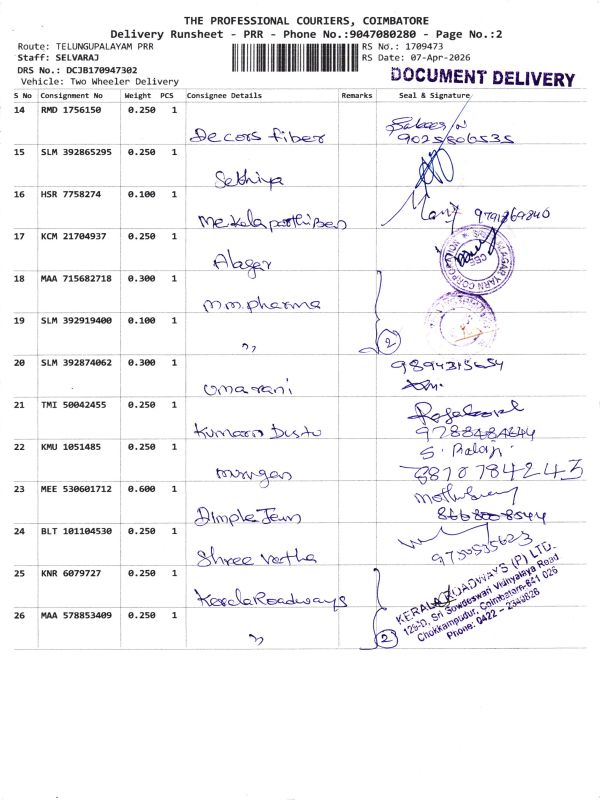 THE PROFESSIONAL COURIERS, COIMBATORE
Delivery Runsheet - PRR - Phone No.:9047080280 - Page No.:2
Route: TELUNGUPALAYAM PRR
RS No.: 1709473
Staff: SELVARAJ
RS Date: 07-Apr-2026
DRS No.: DCJB170947302
Vehicle: Two Wheeler Delivery
DOCUMENT DELIVERY
S No Consignment No Weight PCS Consignee Details Remarks Seal & Signature
14 RMD 1756150 0.250 1
Decors fiber
9025506535
15 SLM 392865295 0.250 1
Sethiya
16 HSR 7758274 0.100 1
Mekala parthiban
Mani 9791869840
17 KCM 21704937 0.250 1
Alagar
18 MAA 715682718 0.300 1
M.M. pharma
19 SLM 392919400 0.100 1
" 2
20 SLM 392874062 0.300 1
9894315654
Uma rani
21 TMI 50042455 0.250 1
Rajagopal
Kumaran Dusto
9788484644
22 KMU 1051485 0.250 1
S. Balaji
Murugan
8810784243
23 MEE 530601712 0.600 1
Dimple Jewn
8668008544
24 BLT 101104530 0.250 1
Shree Vertha
9750535623
25 KNR 6079727 0.250 1
Kerala Roadways
KERALA ROADWAYS (P) LTD.
129-D, Sri Sowdeswari Vidhyalaya Road
Chokkampudur, Coimbatore-641 026
Phone: 0422 - 2349826
26 MAA 578853409 0.250 1
" 2